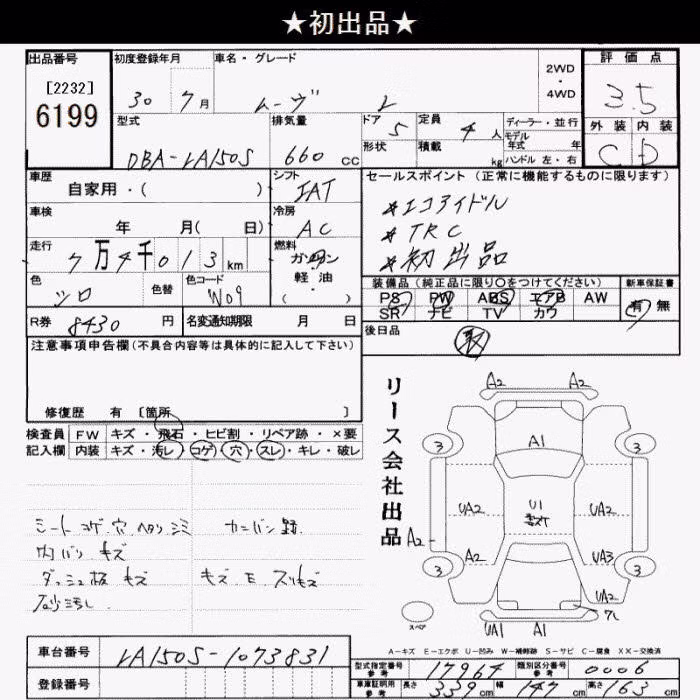 ★初出品★
出品番号 初度登録年月 車名・グレード 2WD ・ 4WD 評価点
[2232]
6199
30 7月 ムーヴ L 3.5
型式 排気量 ドア 5 定員 4人 ディーラー・並行 外装 内装
形状 積載 kg モデル年式 年式 ハンドル 左・右
DBA-LA150S 660 CC C D
車歴 シフト セールスポイント (正常に機能するものに限ります)
自家用・( ) IAT
車検 冷房 *エコアイドル
年 月( 日) AC *TRC
走行 燃料 *初出品
7万4千013km ガソリン
軽油・
( )
色 色替 色コード 装備品(純正品に限り○をつけてください) 新車保証書
シロ W09 PS PW ABS エアB AW 有 無
SR ナビ TV カワ
R券 8430円 名変通知期限 月 日 後日品
注意事項申告欄(不具合内容等は具体的に記入して下さい)
修復歴 有 [箇所 ]
検査員 FW キズ・飛石・ヒビ割・リペア跡・×要
記入欄 内装 キズ・汚レ・コゲ・穴・スレ・キレ・破レ
リース会社出品
A2 A2
3 A1 3
UA2 U1 UA2
A2 A2 UA3
3 3
UA2
スペア UA1 A1 ワレ
シート コゲ 穴 ヘタリ シミ カンバン跡
内バリ キズ
ダッシュ板 キズ キズ E スリキズ
砂汚レ
A-キズ E-エクボ U-凹み W-補修跡 S-サビ C-腐食 XX-交換済
車台番号 LA150S-1073831
型式指定番号 参考 17964 類別区分番号 参考 0006
登録番号 車庫証明用 参考 長さ 339cm 幅 147cm 高さ 163cm